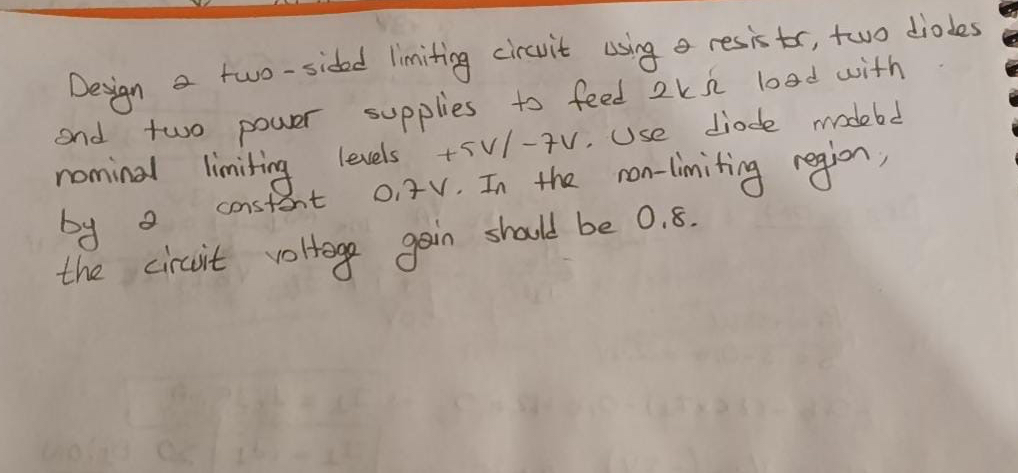 Design a two-sided limiting circuit using a resistor, two diodes
and two power supplies to feed 2kΩ load with
nominal limiting levels +5V/-7V. Use diode modeled
by a constant 0,7V. In the non-limiting region,
the circuit voltage gain should be 0.8.